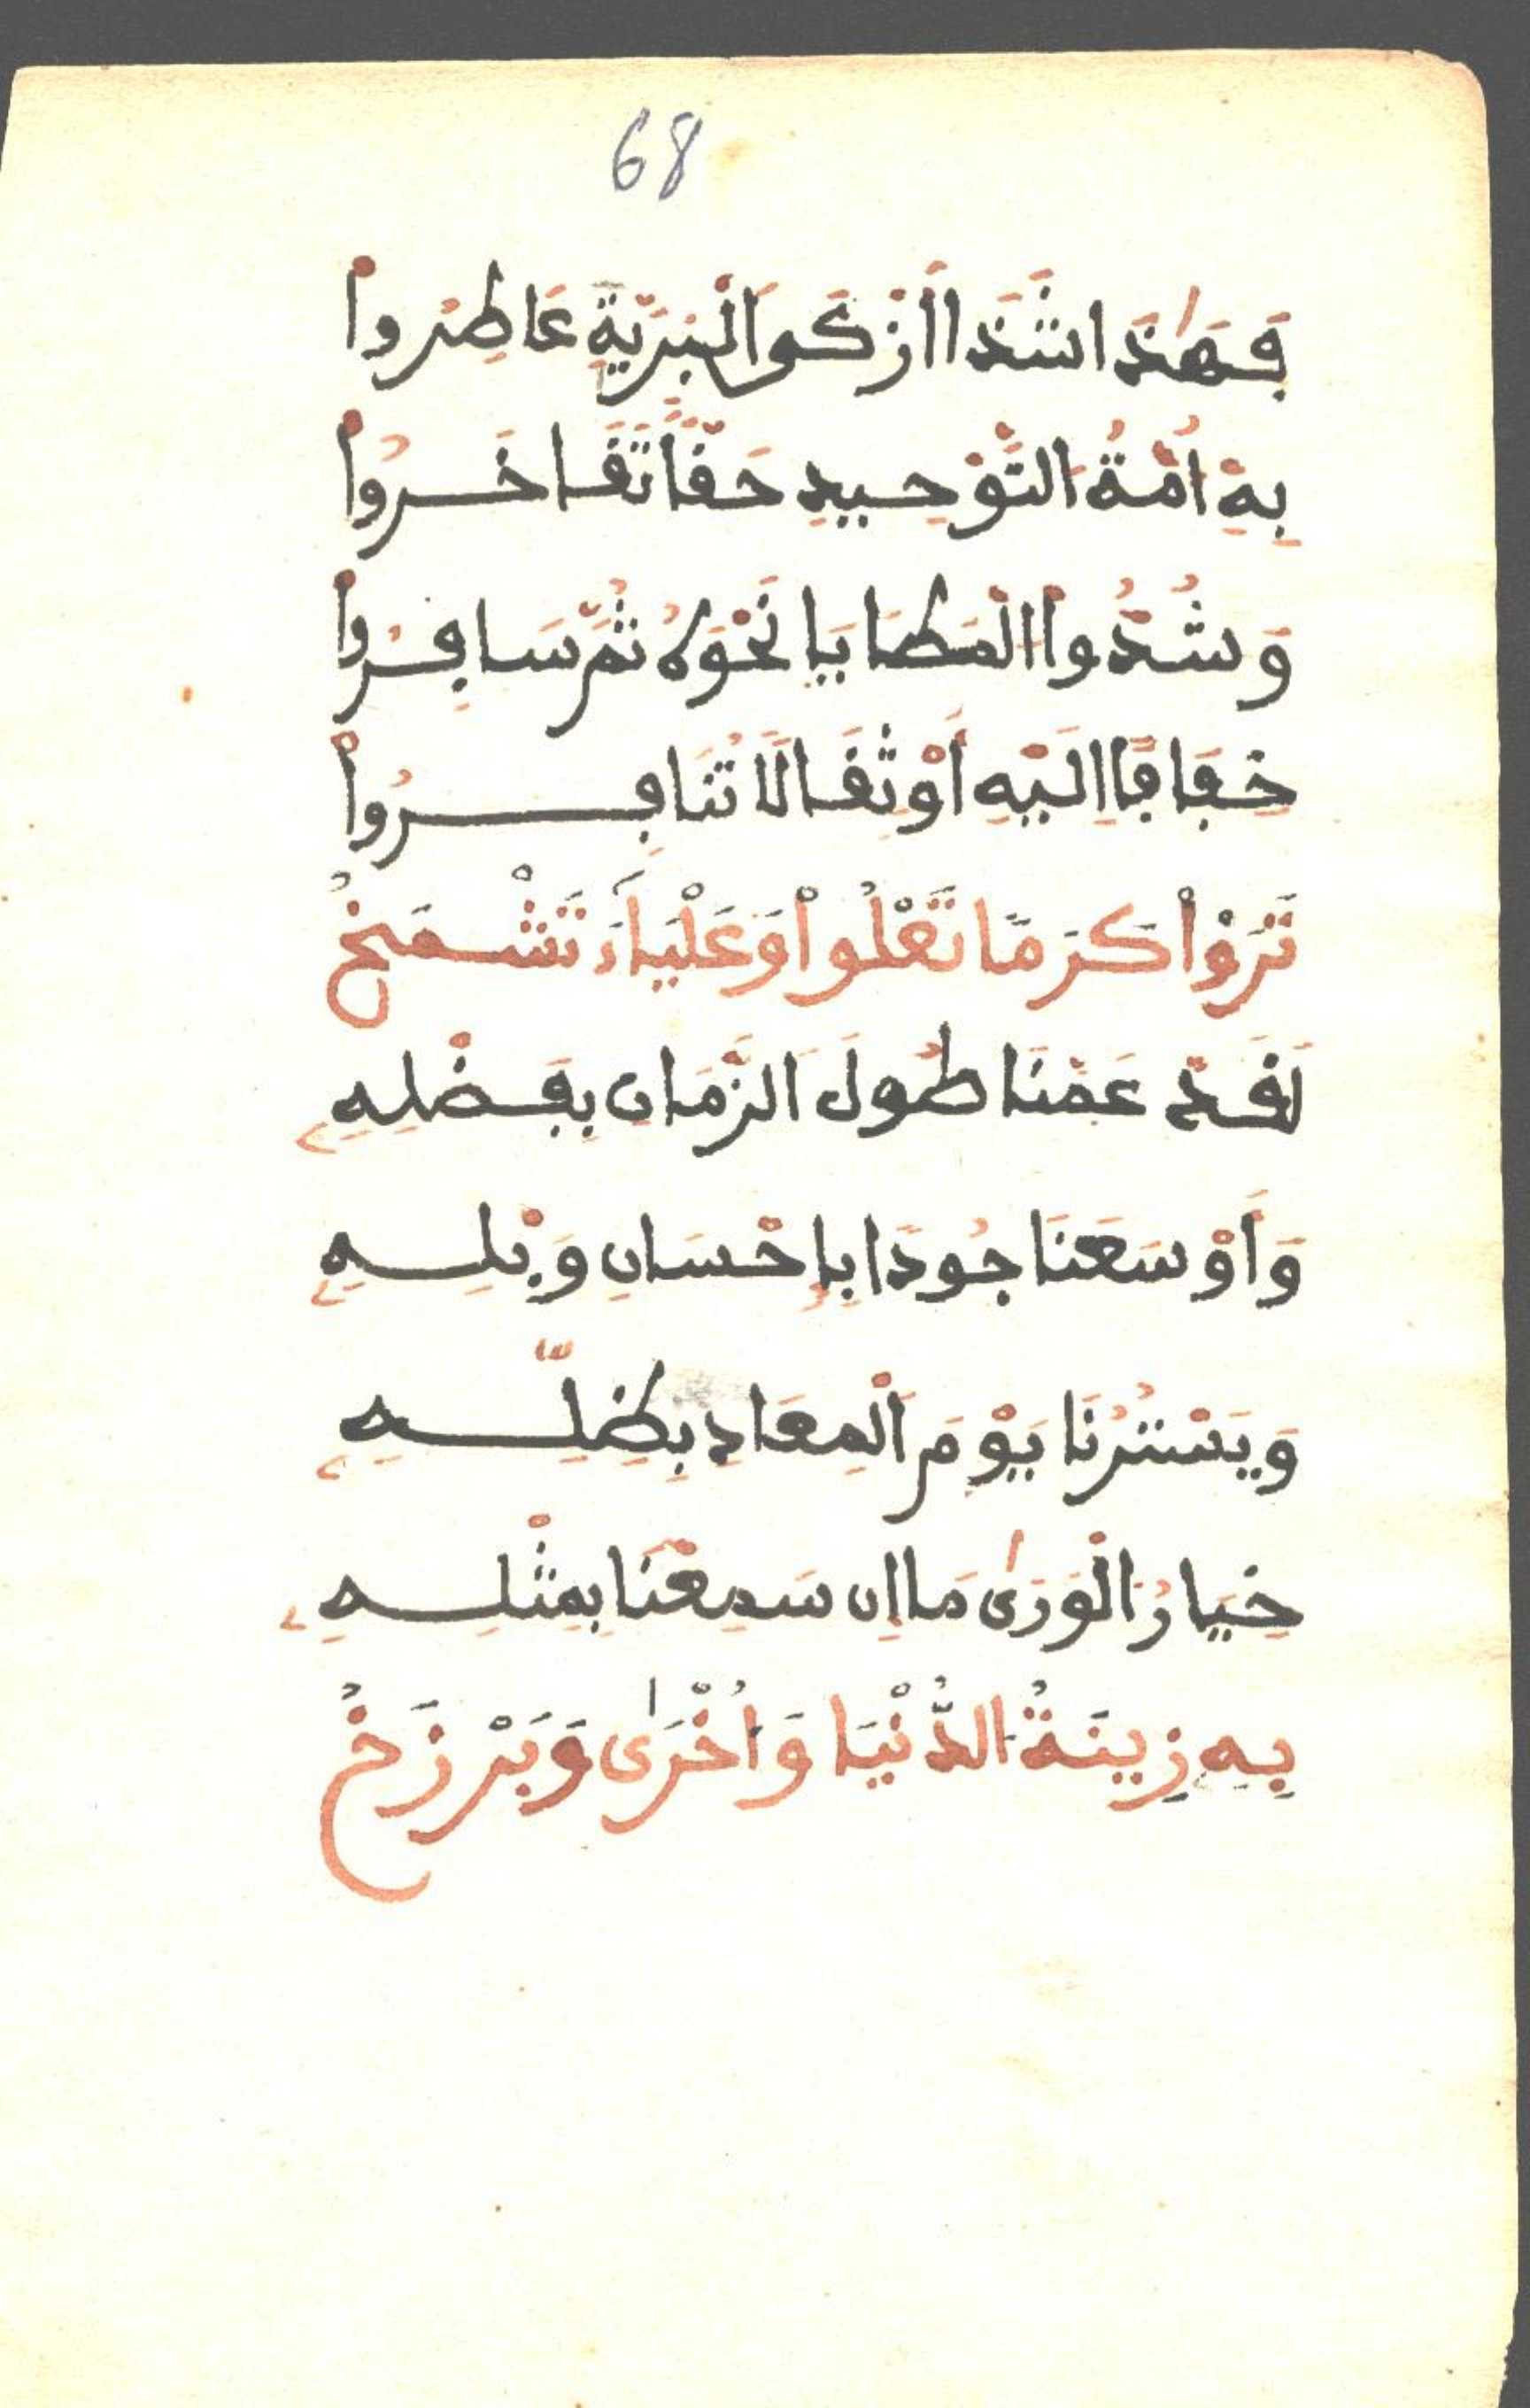 68
فَهَٰذَا شَذَا أَزْكَى الْبَرِيَّةِ عَاطِرُوا
بِهِ أُمَّةُ التَّوْحِيدِ حَقًّا تَفَاخَرُوا
وَشُدُّوا الْمَطَايَا نَحْوَهُ ثُمَّ سَافِرُوا
خِفَافًا إِلَيْهِ أَوْ ثِقَالًا تُنَافِرُوا
تَرَوْا كَرَمًا تَعْلُوا وَعَلْيَاءَ تَشْمَخُ
لَقَدْ عَمَّنَا طُولَ الزَّمَانِ بِفَضْلِهِ
وَأَوْسَعَنَا جُودًا بِإِحْسَانِ وَبْلِهِ
وَيَسْتُرُنَا يَوْمَ الْمَعَادِ بِظِلِّهِ
خِيَارُ الْوَرَىٰ مَا إِنْ سَمِعْنَا بِمِثْلِهِ
بِهِ زِينَةُ الدُّنْيَا وَأُخْرَىٰ وَبَرْزَخُ